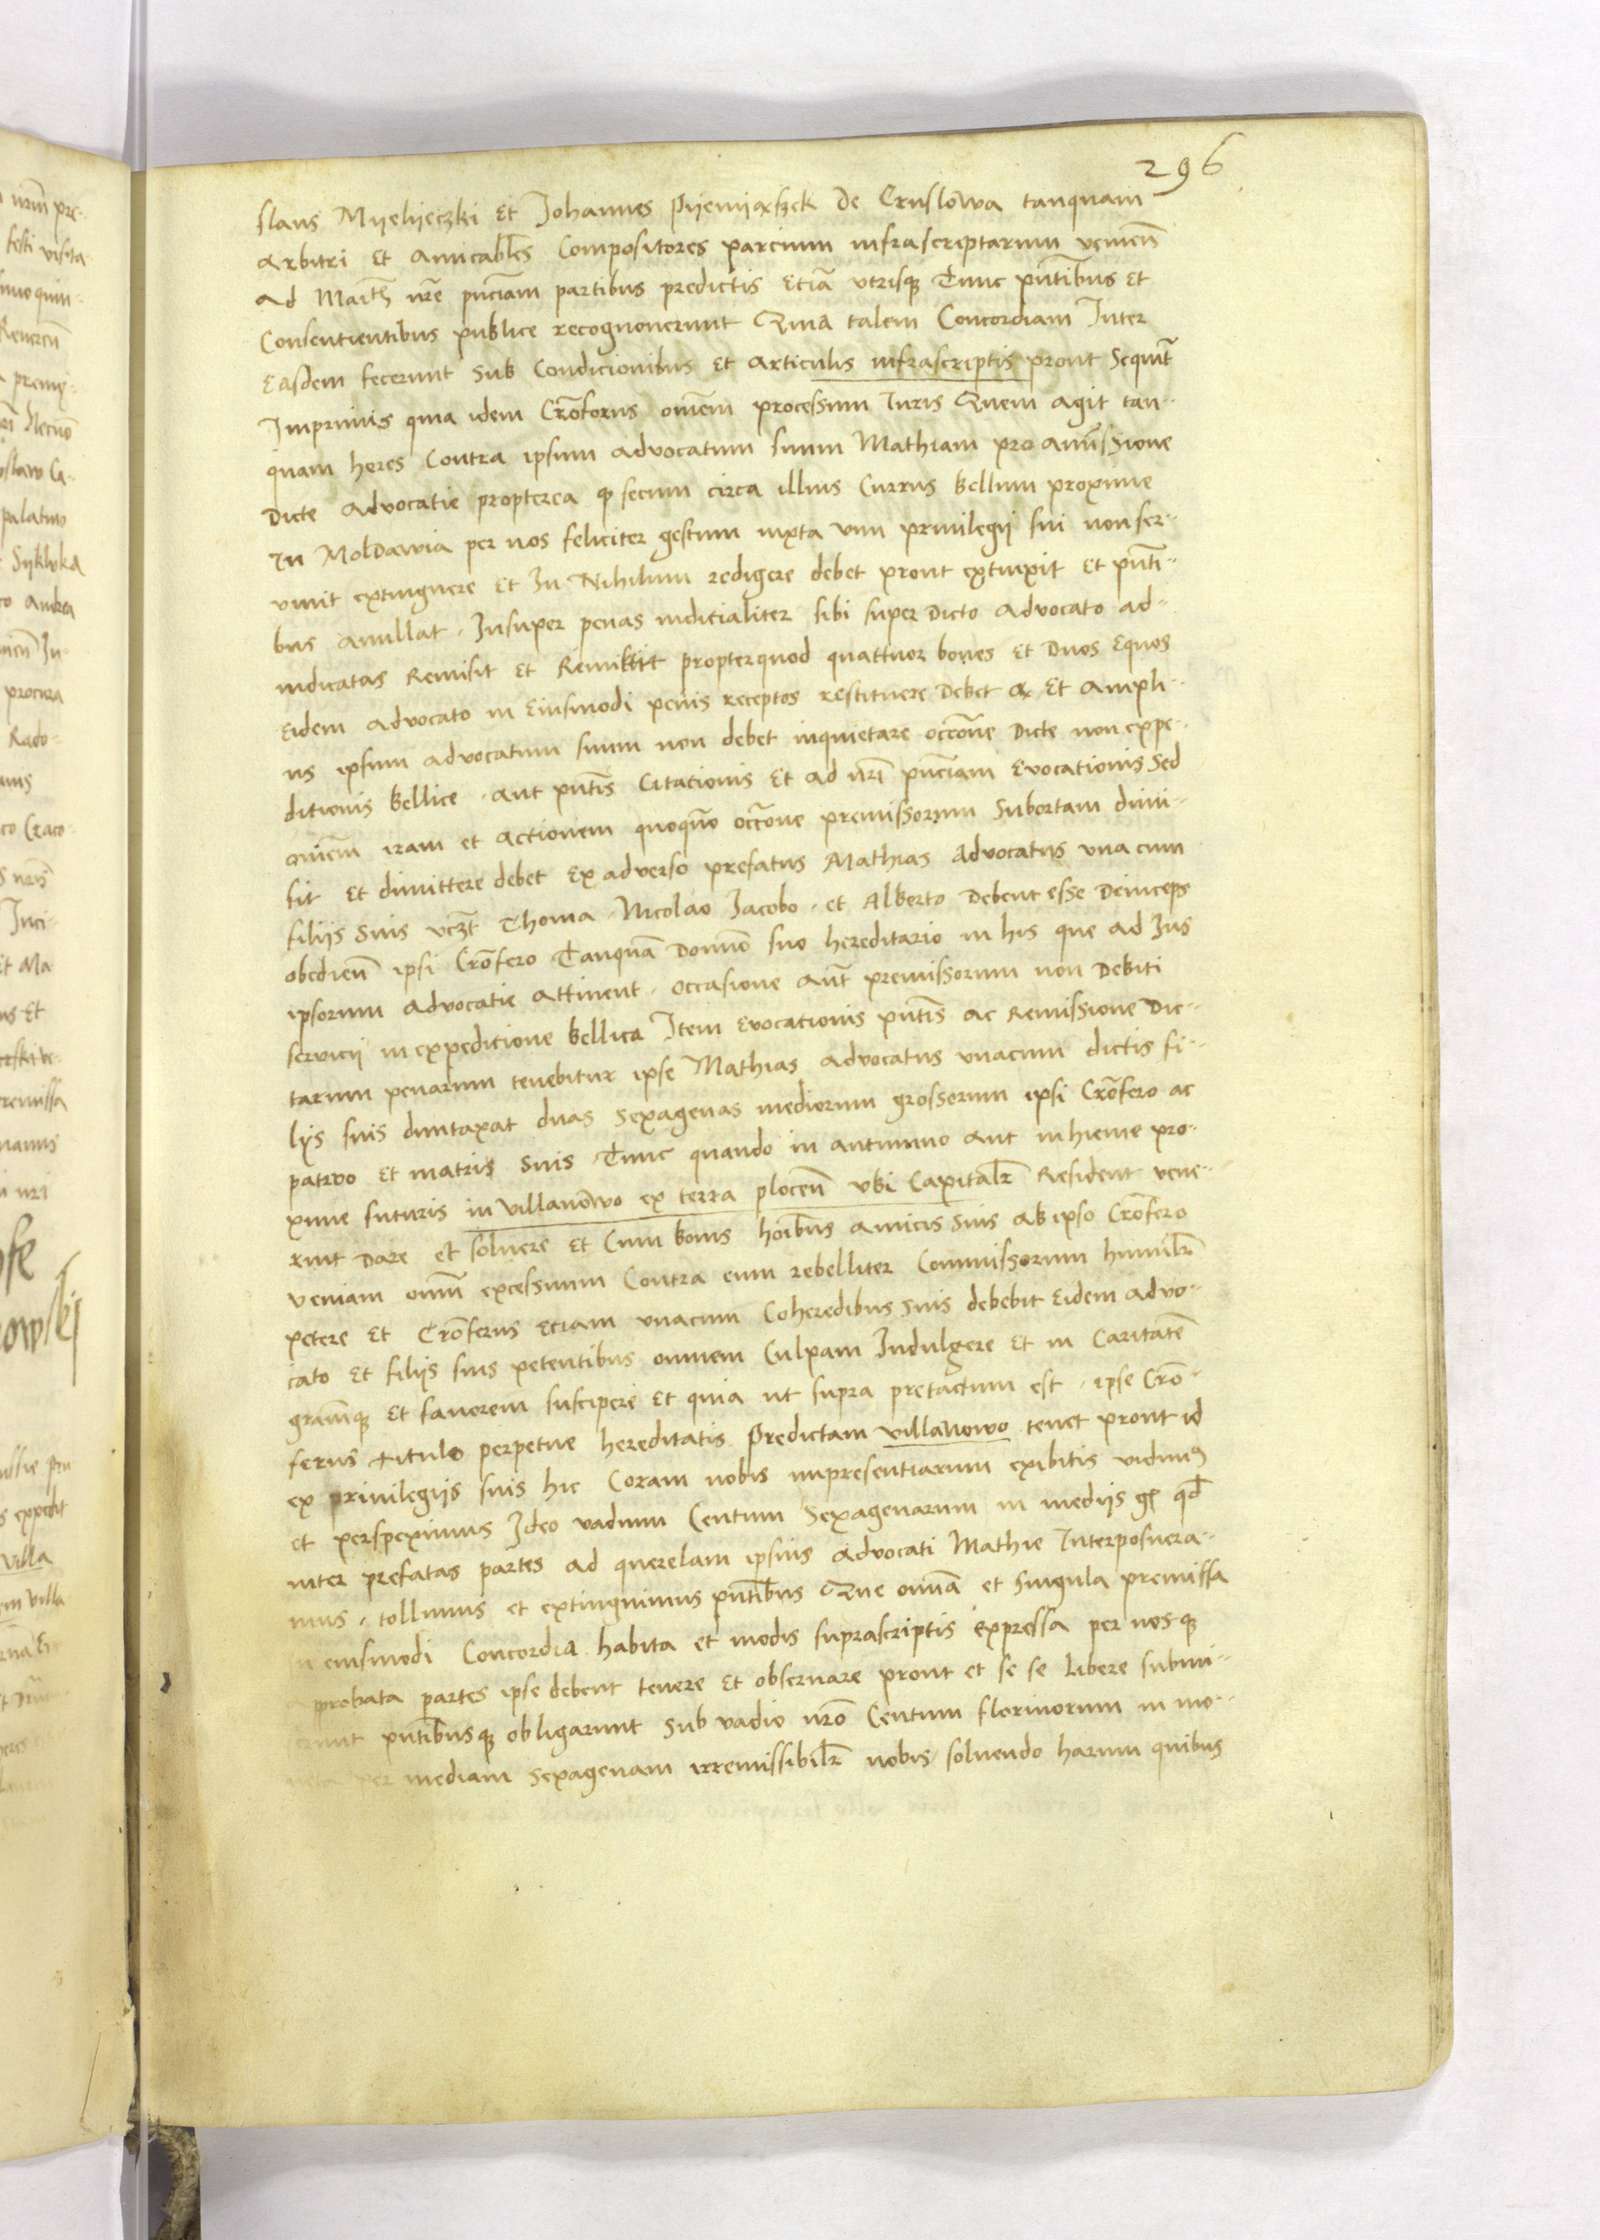 296
slaus Myelyeczki et Johannes Pyenyąszek de Cruslowa tanquam
arbitri et amicabl̃es Compositores parcium infrascriptarum venien̄
ad Maith nr̃e pñciam partibus predictis eciã utrisqꝫ Tunc pñtibus et
Consentientibus publice recognoverunt Quia talem Concordiam Inter
easdem fecerunt sub Condicionibus et articulis infrascriptis prout sequit̃
Imprimis quia idem Cr̃oferus om̃em processum Iuris Quem agit tan-
quam heres Contra ipsum advocatum suum Mathiam pro amissione
Dicte Advocatie propterea ꝙ secum circa illius Currus bellum proxime
in Moldawia per nos feliciter gestum iuxta vim privilegii sui non ser-
vivit extinguere et In Nihilum redigere debet prout extinxit et pñti-
bus anullat. Insuper penas iuditialiter sibi super Dicto advocato ad-
iudicatas Remisit et Remittit propterquod quattuor boves et Duos equos
eidem advocato in eiusmodi penis receptos restituere Debet et ampli-
us ipsum advocatum suum non debet inquietare occc̃one Dicte non expe-
ditionis bellice. aut pñtis Citationis et ad nr̃i pñciam evocationis Sed
om̃em iram et actionem quoquõ occc̃one premissorum subortam dimi-
sit et dimittere debet Ex adverso prefatus Mathias Advocatus una cum
filiis suis vcꝫt Thoma. Nicolao Iacobo. et Alberto Debent esse Deinceps
obedien̄ ipsi Cr̃ofero Tanquã Domino suo hereditario in his que ad Ius
ipsorum advocatie attinent. occasione aut̃ premissorum non Debiti
servicii in expeditione bellica Item evocationis pñtis ac Remissione Dic-
tarum penarum tenebitur ipse Mathias advocatus unacum dictis fi-
lys suis duntaxat duas sexagenas mediorum grossorum ipsi Cr̃ofero ac
patruo et matris suis Tunc quando in autumno aut in hieme pro-
xime futuris in Villanowo ex terra plocen̄ ubi Capital̃r Resident vene-
rint Dare et soluere et Cum bonis hoĩbus amicis suis ab ipso Cr̃ofero
veniam om̃m excessuum Contra eum rebelliter Commissorum humil̃r
petere et Cr̃oferus eciam unacum Coheredibus suis debebit eidem advo-
cato et filijs suis petentibus omnem Culpam Indulgere et in Caritatẽ
gram̃qꝫ et favorem suscipere et quia ut supra pretactum est. ipse Crõ-
ferus titulo perpetue hereditatis predictam villanowo tenet prout id
ex privilegiis suis hic Coram nobis inpresentiarum exibitis vidimꝰ
et perspeximus Ideo vadium Centum Sexagenarum in mediis gr̃ qd̃
inter prefatas partes ad querelam ipsius advocati Mathie Interposuera-
mus. tollimus et extinguimus pñtibus Que omnã et singula premissa
in eiusmodi Concordia habita et modis suprascriptis expressa per nosqꝫ
approbata partes ipse debent tenere et observare prout et se se libere submi-
serunt pñtibusqꝫ obligarunt sub vadio nr̃o Centum florinorum in mo-
neta per mediam sexagenam irremissibil̃r nobis soluendo harum quibus